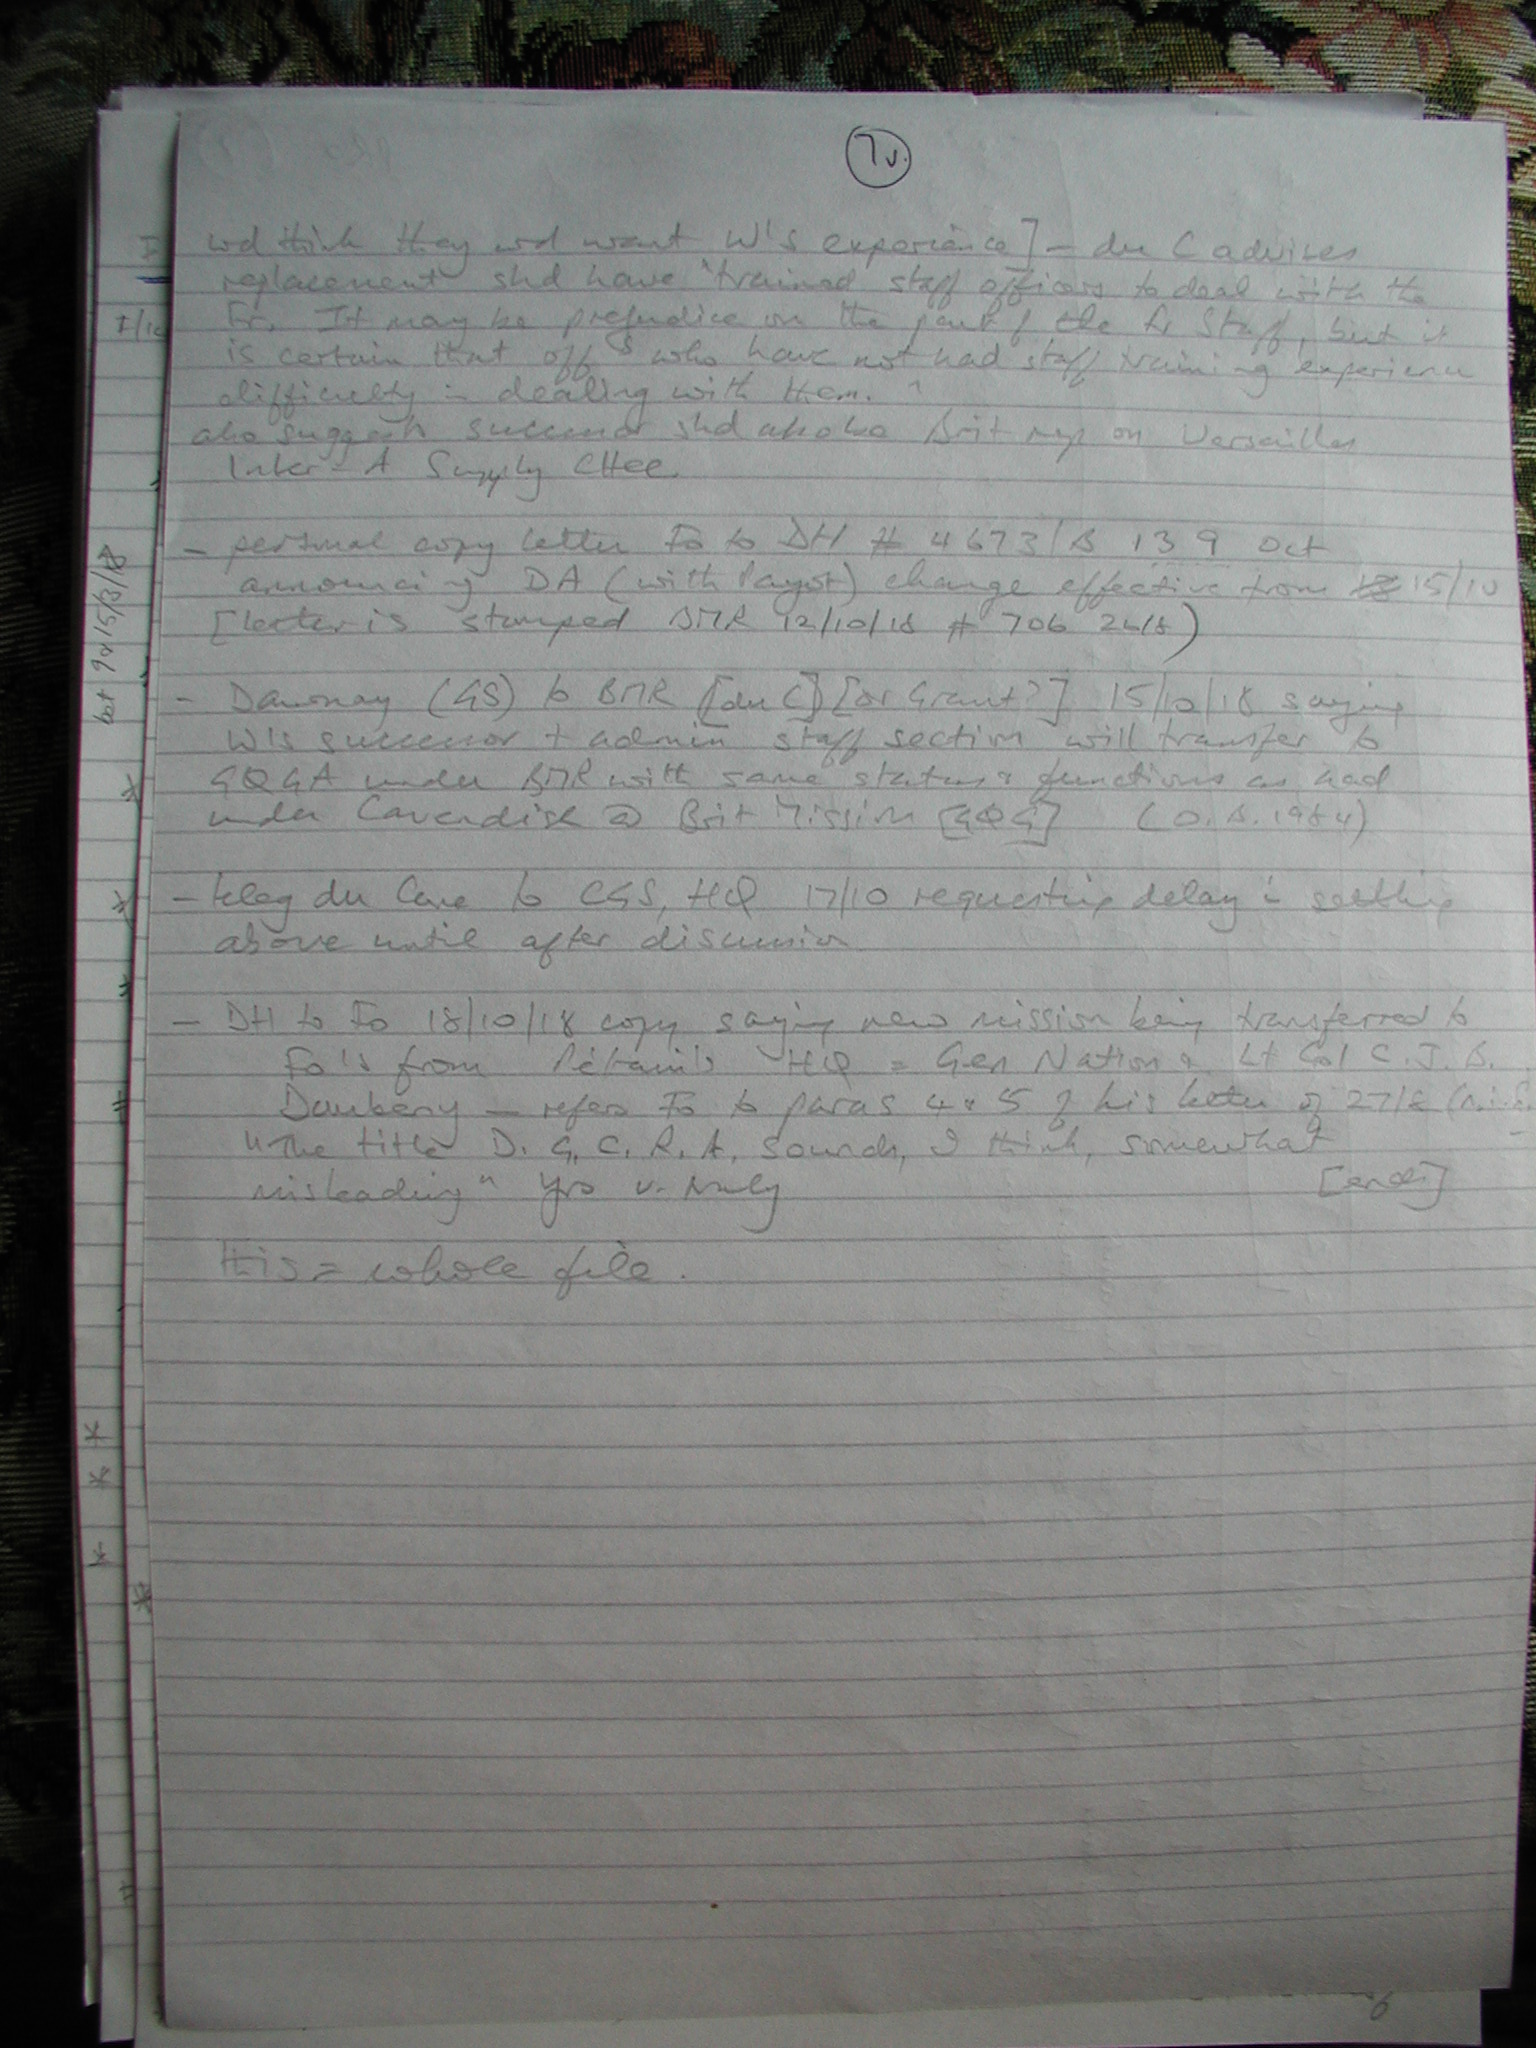 7v.
wd think they wd want W's experience] – du C advises
replacement shd have "trained staff officers to deal with the
Fr. It may be prejudice on the part of the Fr Staff, but it
is certain that offrs who have not had staff training experience
difficulty in dealing with them."
also suggests successor shd also be Brit rep on Versailles
Inter-A Supply Cttee
– personal copy letter Fo to DH # 4673/B 139 Oct
announcing DA (with Payot) change effective from 15/10
[letter is stamped BMR 12/10/18 # 706 26/8)
– Dawnay (GS) to BMR [du C] [or Grant?] 15/10/18 saying
W's successor + admin staff section will transfer to
GQGA under BMR with same status & functions as had
under Cavendish @ Brit Mission [GQG] (O.B. 1984)
– teleg du Cane to CGS, HQ 17/10 requesting delay in settling
above until after discussion
– DH to Fo 18/10/18 copy saying new mission being transferred to
Fo's from Pétain's HQ = Gen Nation & Lt Col C. J. B.
Daubeny – refers Fo to paras 4 & 5 of his letter of
"the title D. G. C. R. A. sounds, I think, somewhat
misleading" Yrs v. truly [ends]
This = whole file.